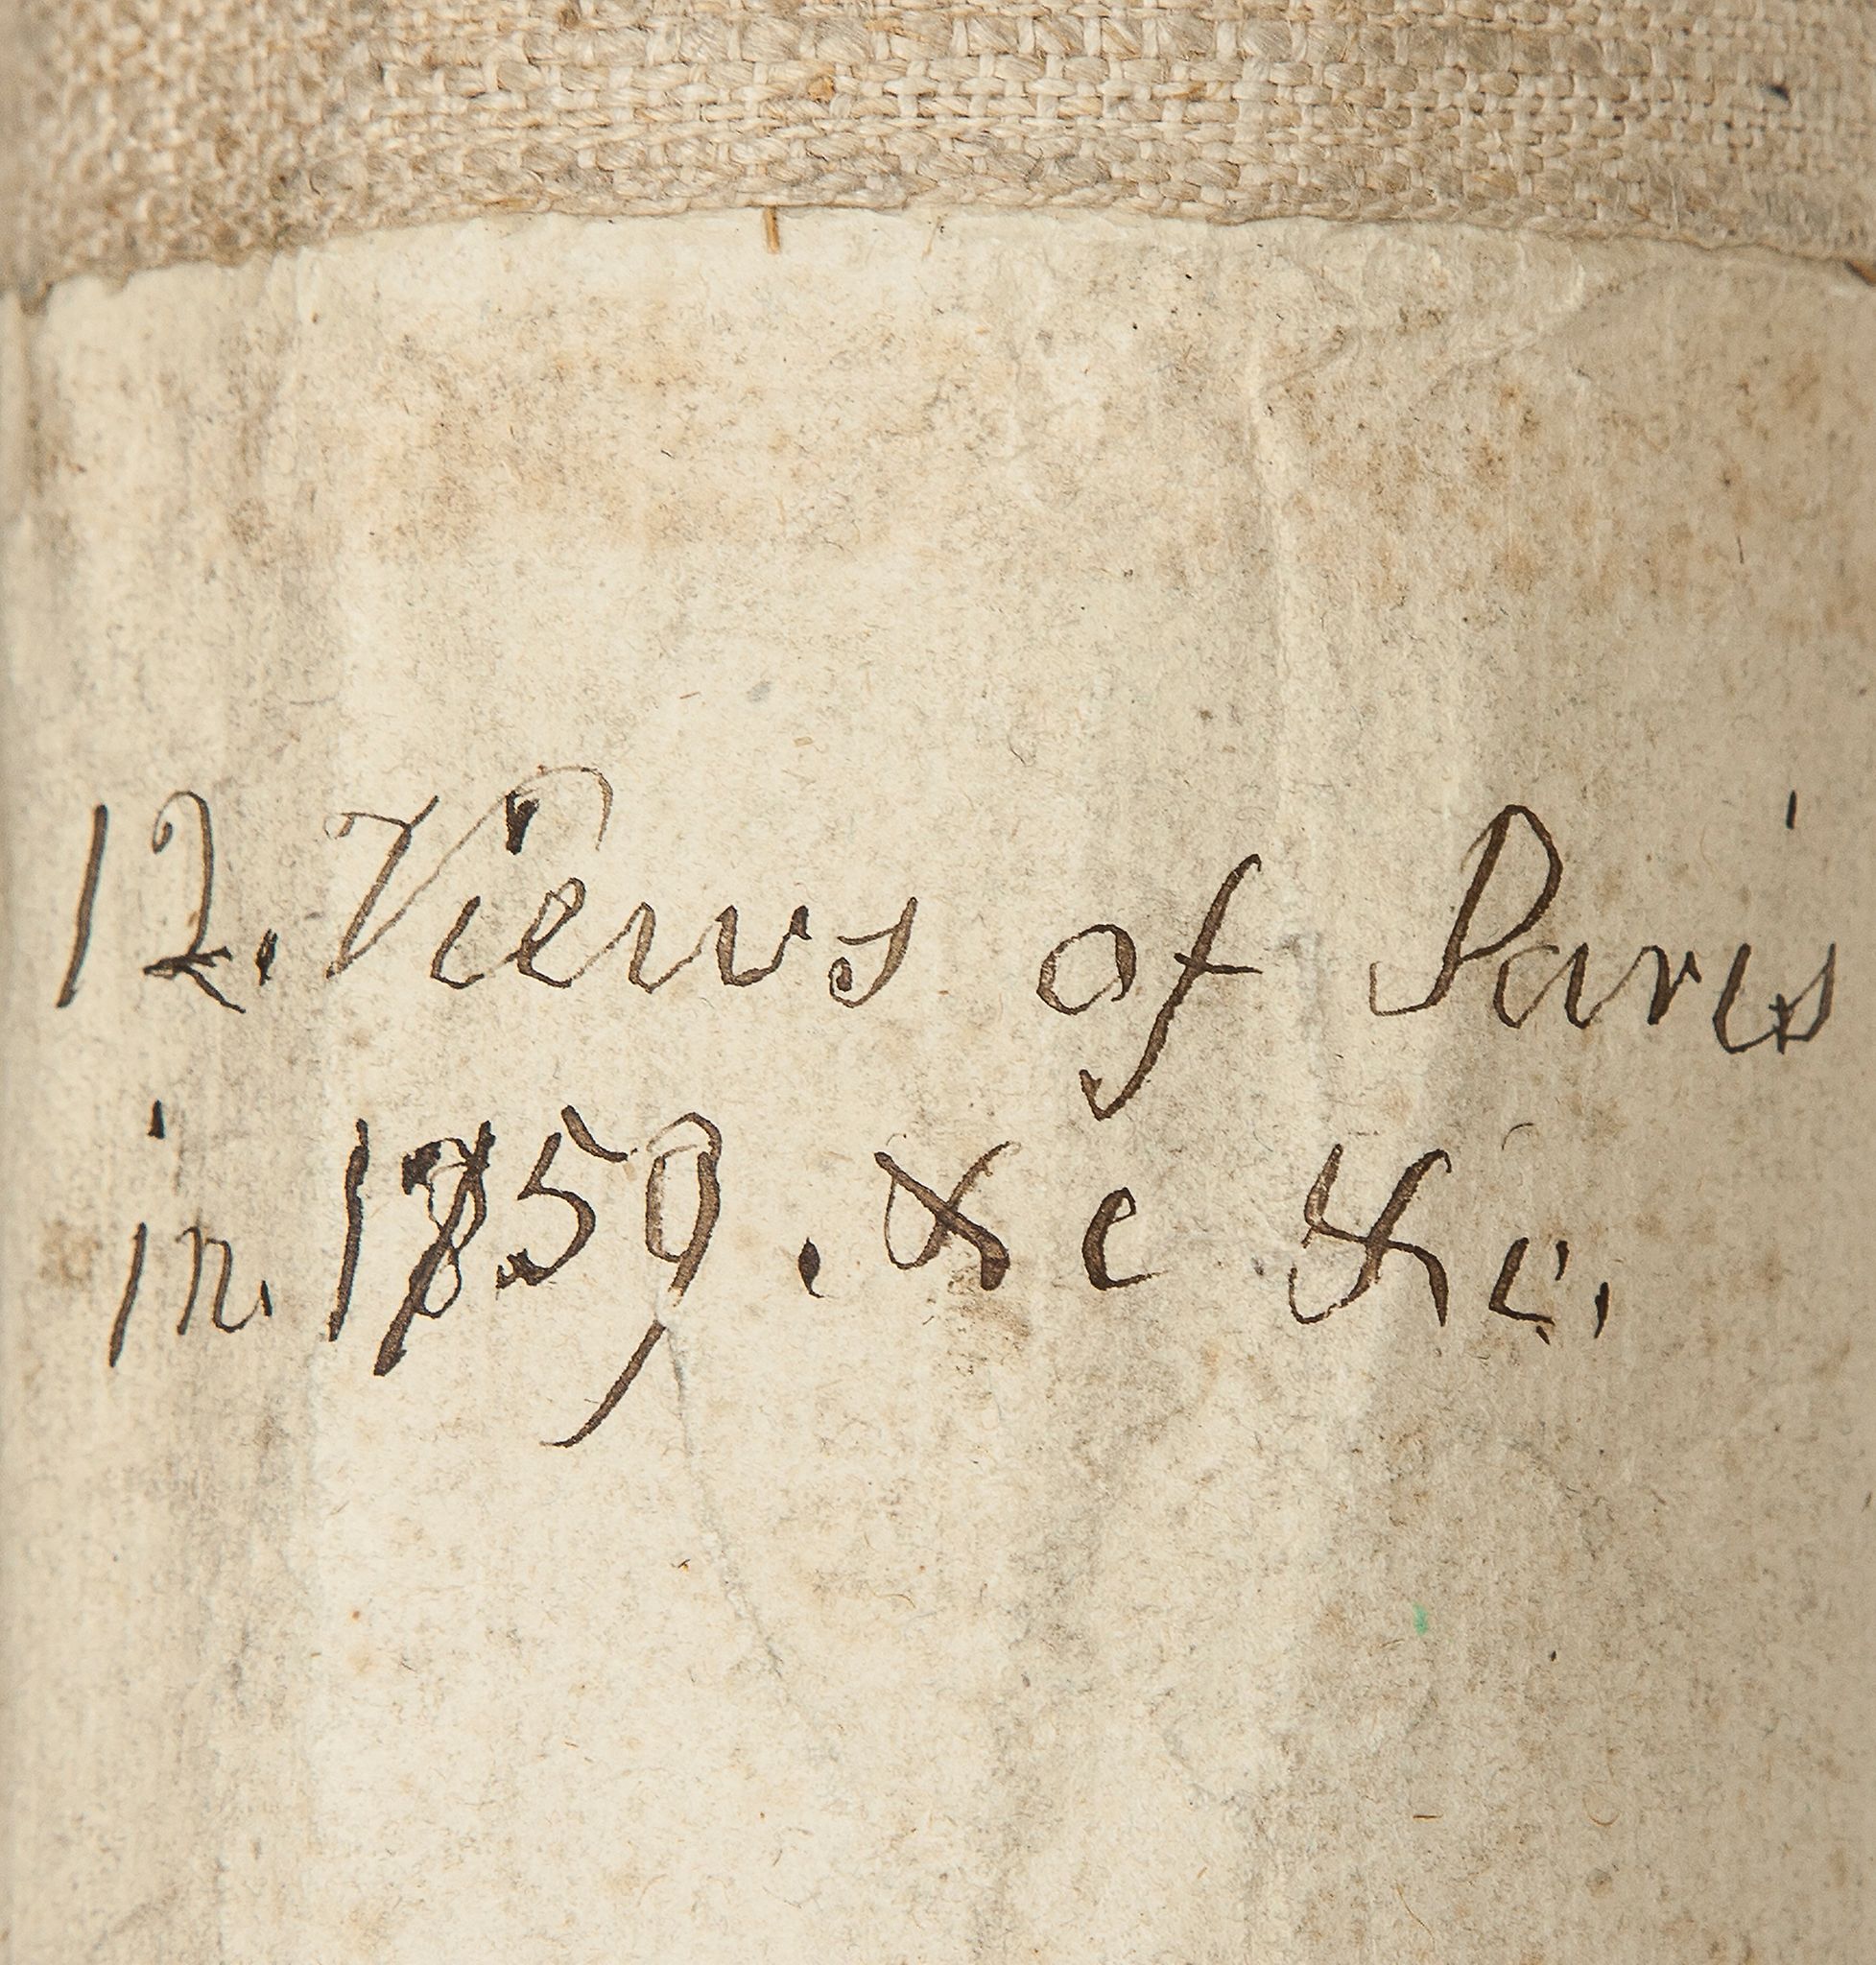 12. Views of Paris
in. 1759. &c &c.